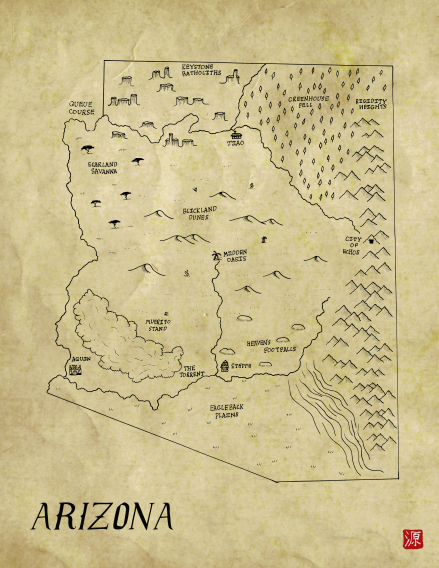 KEYSTONE
BATHOLITHS
QUEUE
COURSE
GREENHOUSE
FELL
RIGIDITY
HEIGHTS
TZAO
SCABLAND
SAVANNA
SLICKLAND
DUNES
CITY
OF
ECHOES
MIDDEN
OASIS
STAND
HEAVEN'S
FOOTFALLS
THE
TORRENT
STEPPE
EAGLEBACK
PLAINS
ARIZONA
源